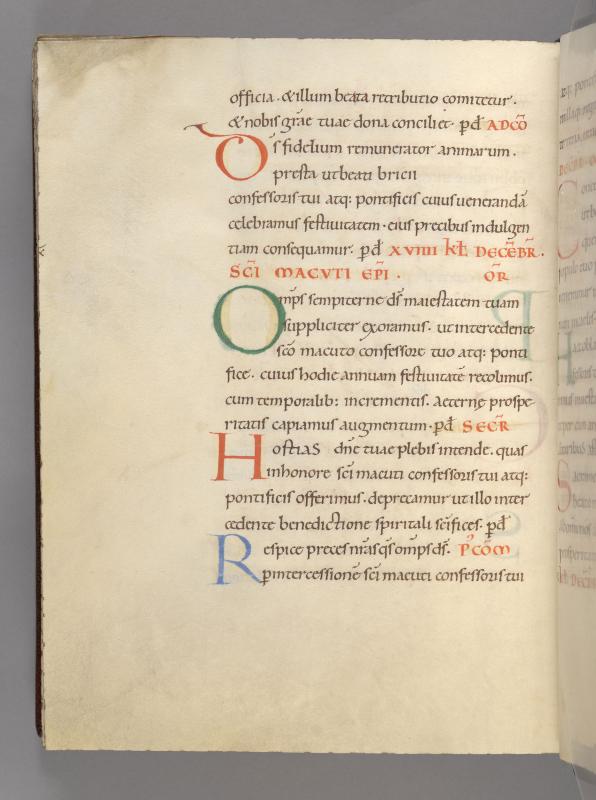 officia · &illum beata retributio comitetur.
&nobis grãe tuae dona conciliet · p̃d ADCÕ
D̃s fidelium remunerator animarum ·
presta utbeati bricii
confessoris tui atq: pontificis cuius uenerandã
celebramus festiuitatem · eius precibus indulgen
tiam consequamur · p̃d XVIIII kł DECẼBR̃ ·
SC̃I MACVTI EPĨ · OR̃
Omp̃s sempiterne ds̃ maiestatem tuam
suppliciter exoramus · ut intercedente
sc̃o macuto confessore tuo atq: ponti
fice · cuius hodie annuam festiuitatẽ recolimus ·
cum temporalib: incrementis · aeterne prospe-
ritatis capiamus augmentum · p̃d SECR̃
Hostias dñe tuae plebis intende · quas
inhonore sc̃i macuti confessoris tui atq:
pontificis offerimus · deprecamur ut illo inter
cedente benedictione spiritali sc̃ifices · p̃d
Respice preces nr̃as qs̃ omp̃s ds̃ · P̉CÕM
ꝑintercessionẽ sc̃i macuti confessoris tui